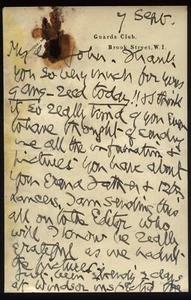 7 Sept.
Guards Club,
Brook Street, W.1.
My dear John. Thank
you so very much for yours
I think
it so really kind of you Ever
to have thought of sending
me all the information &
pictures you have about
your Grand father & 12th
Lancers, I am sending this
all on to the Editor who
will I know be really
grateful as we had
the pictures.
been 2 days
at Windsor inspected the